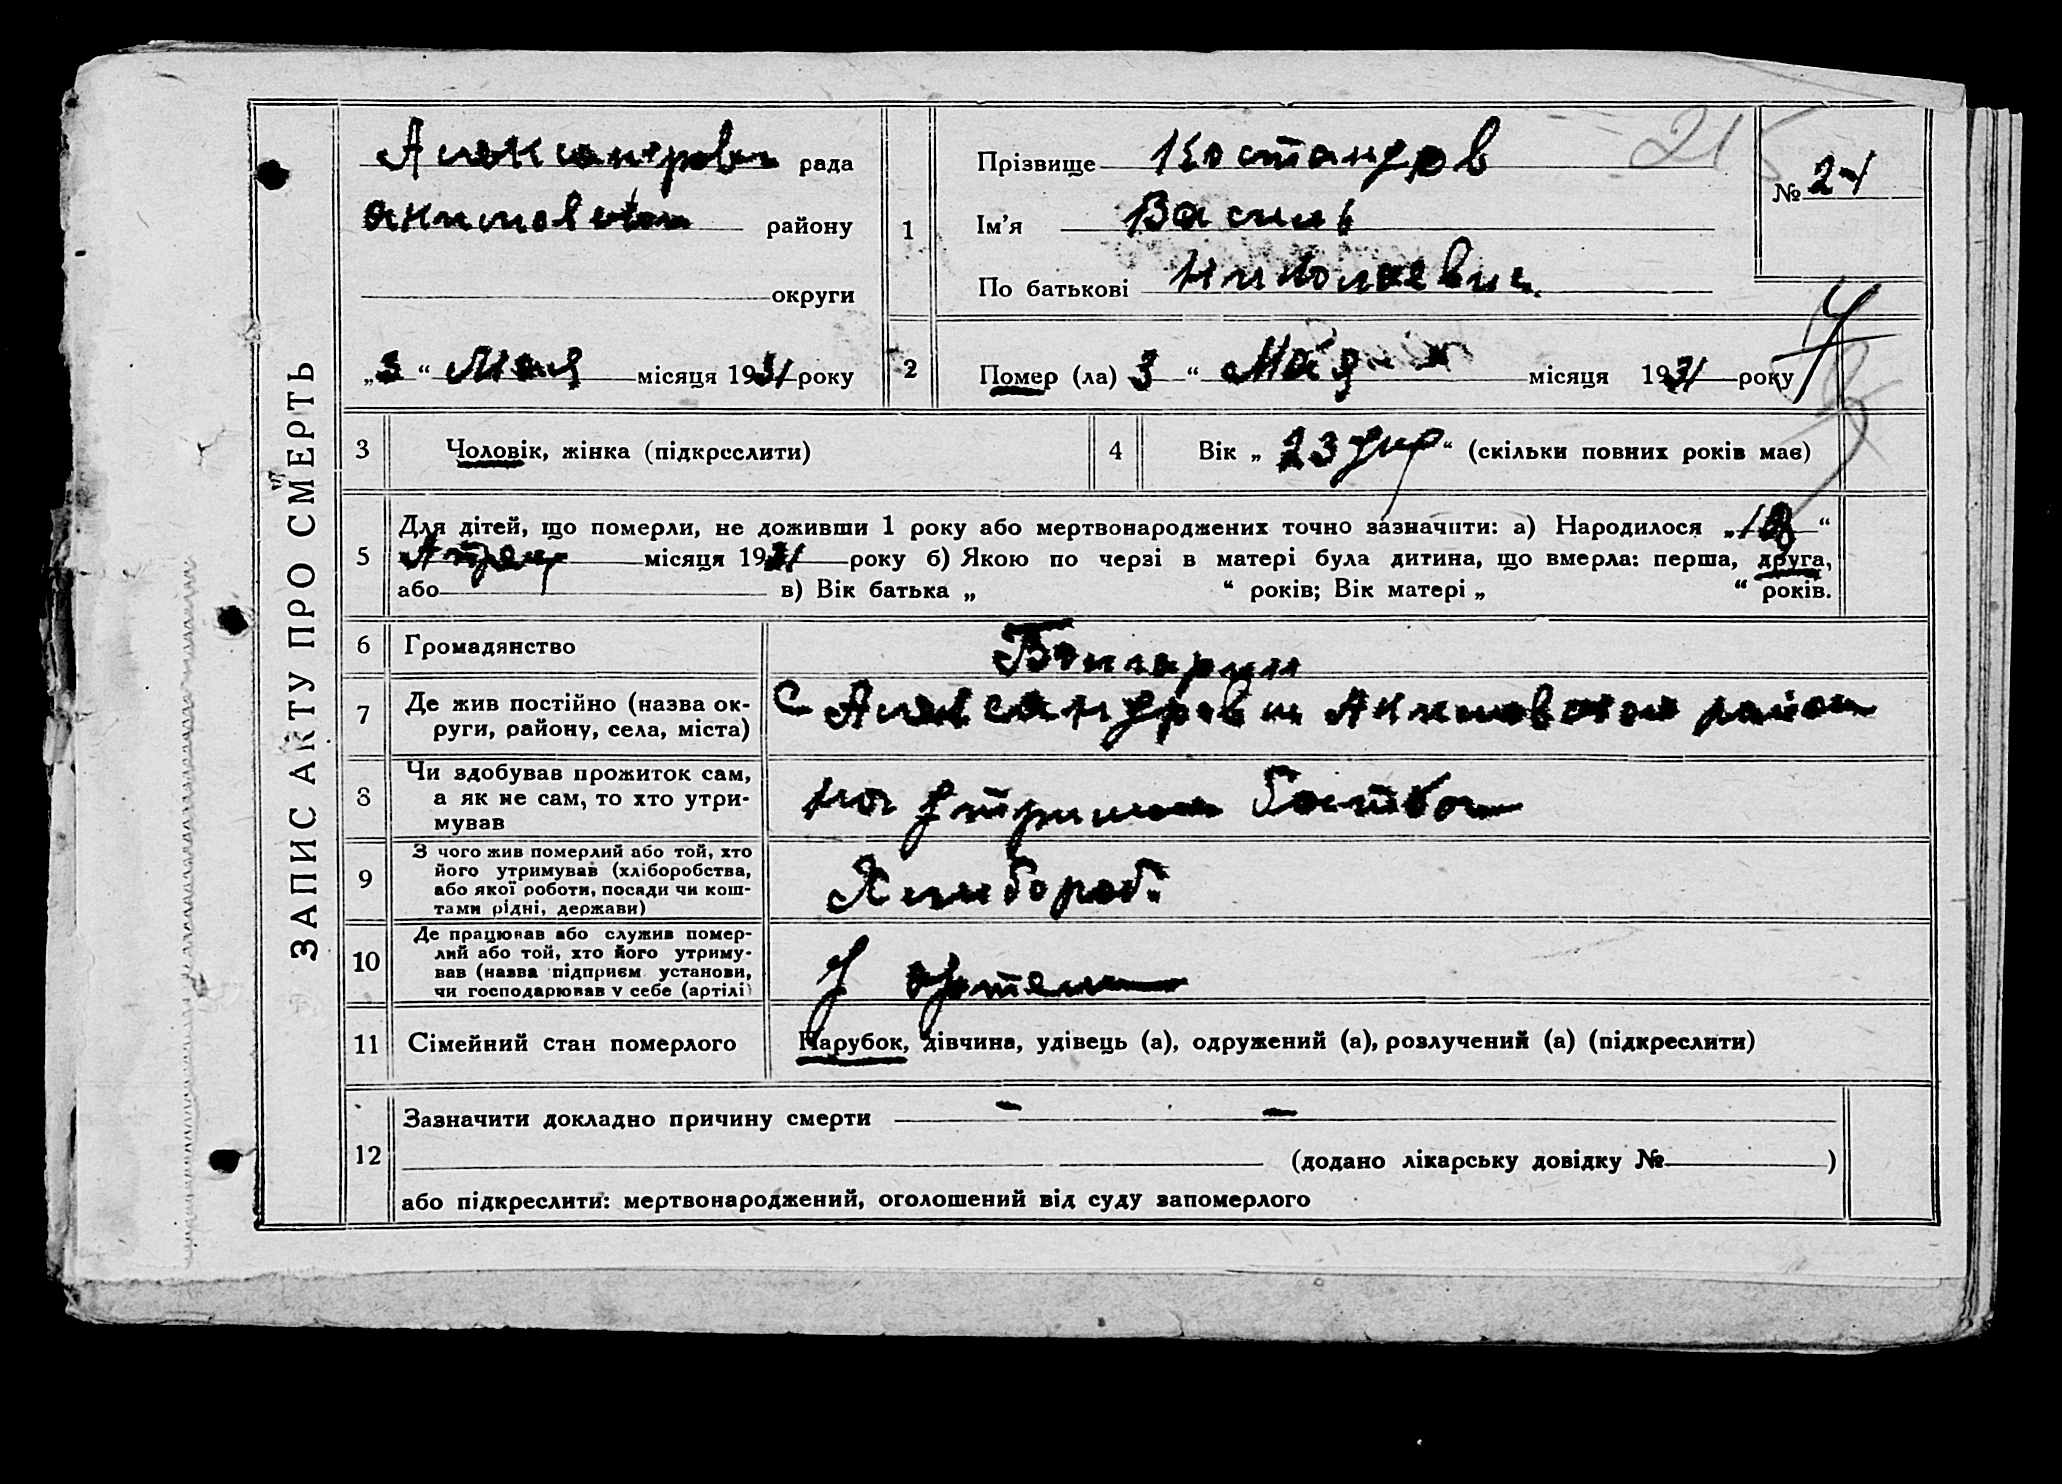 ЗАПИС АКТУ ПРО СМЕРТЬ
рада
району
округи
„3“ Мая місяця 1931 року
1
Прізвище Костандов
Ім'я Василь
По батькові Николаевич
215
№ 24
2
Помер (ла) 3 “ Мая місяця 1931 року
3 Чоловік, жінка (підкреслити)
4 Вік „ 23 дня “ (скільки повних років має)
5 Для дітей, що померли, не доживши 1 року або мертвонароджених точно зазначити: а) Народилося „ “
Апреля місяця 1931 року б) Якою по черзі в матері була дитина, що вмерла: перша, друга,
або в) Вік батька „ “ років; Вік матері „ “ років.
6 Громадянство
7 Де жив постійно (назва ок-
руги, району, села, міста)
С Александровка район
8 Чи здобував прожиток сам,
а як не сам, то хто утри-
мував
на утриман батька
9 З чого жив померлий або той, хто
його утримував (хліборобства,
або якої роботи, посади чи кош-
тами рідні, держави)
Хлибороб.
10 Де працював або служив помер-
лий або той, хто його утриму-
вав (назва підприєм установи,
чи господарював у себе (артілі)
У артели
11 Сімейний стан померлого
Парубок, дівчина, удівець (а), одружений (а), розлучений (а) (підкреслити)
12 Зазначити докладно причину смерти — —
(додано лікарську довідку № )
або підкреслити: мертвонароджений, оголошений від суду запомерлого